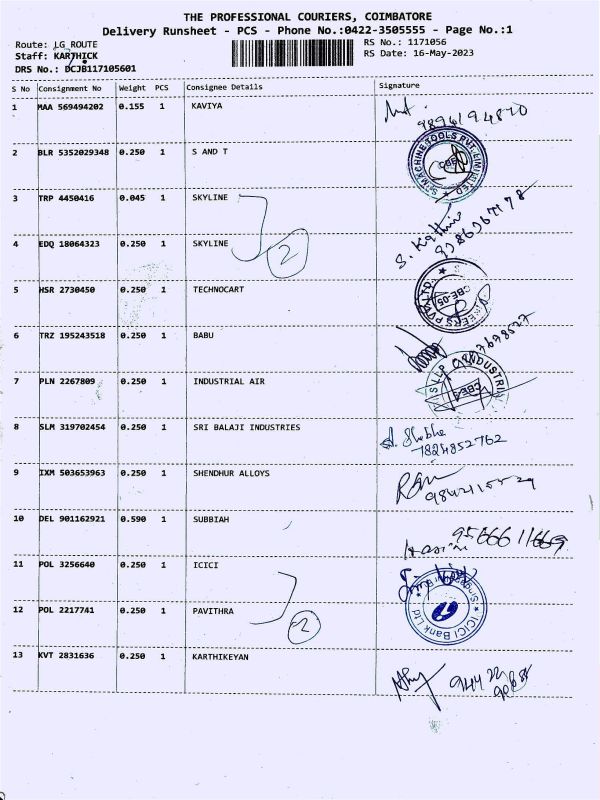 THE PROFESSIONAL COURIERS, COIMBATORE
Delivery Runsheet - PCS - Phone No.:0422-3505555 - Page No.:1
Route: LG_ROUTE
RS No.: 1171056
Staff: KARTHICK
RS Date: 16-May-2023
DRS No.: DCJB117105601
S No Consignment No Weight PCS Consignee Details Signature
1 MAA 569494202 0.155 1 KAVIYA
2 BLR 5352029348 0.250 1 S AND T
MACHINE TOOLS PVT. LIMITED
3 TRP 4450416 0.045 1 SKYLINE
4 EDQ 18064323 0.250 1 SKYLINE
2
5 HSR 2730450 0.250 1 TECHNOCART
CBE-05
6 TRZ 195243518 0.250 1 BABU
7 PLN 2267809 0.250 1 INDUSTRIAL AIR
8 SLM 319702454 0.250 1 SRI BALAJI INDUSTRIES
7824852762
9 IXM 503653963 0.250 1 SHENDHUR ALLOYS
10 DEL 901162921 0.590 1 SUBBIAH
11 POL 3256640 0.250 1 ICICI
ICICI Bank Ltd
12 POL 2217741 0.250 1 PAVITHRA
2
13 KVT 2831636 0.250 1 KARTHIKEYAN